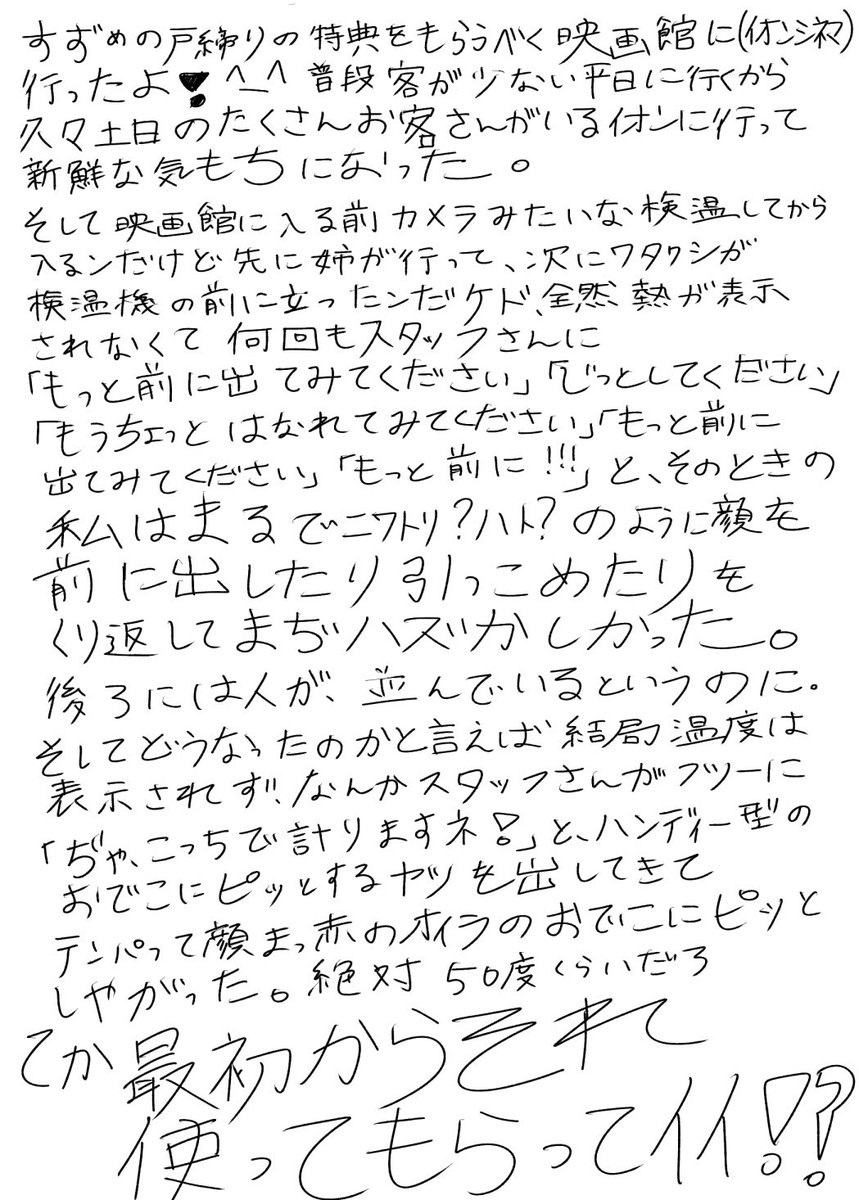 すずめの戸締りの特典をもらうべく映画館に(イオンシネマ)
行ったよ❣^_^ 普段客が少ない平日に行くから
久々土日のたくさんお客さんがいるイオンに行って
新鮮な気もちになった。
そして映画館に入る前カメラみたいな検温してから
入るンだけど先に姉が行って、次にワタクシが
検温機の前に立ったンだケド、全然熱が表示
されなくて何回もスタッフさんに
「もっと前に出てみてください」「じっとしてください」
「もうちょっとはなれてみてください」「もっと前に
出てみてください」「もっと前に!!!」と、そのときの
私はまるでニワトリ?ハト?のように顔を
前に出したり引っこめたりを
くり返してまぢハズかしかった。
後ろには人が、並んでいるというのに。
そしてどうなったのかと言えば結局温度は
表示されず、なんかスタッフさんがフツーに
「ぢゃ、こっちで計りますネ!」と、ハンディー型の
おでこにピッとするヤツを出してきて
テンパって顔まっ赤のオイラのおでこにピッと
しやがった。絶対50度くらいだろ
てか最初からそれ
使ってもらってイイ!?